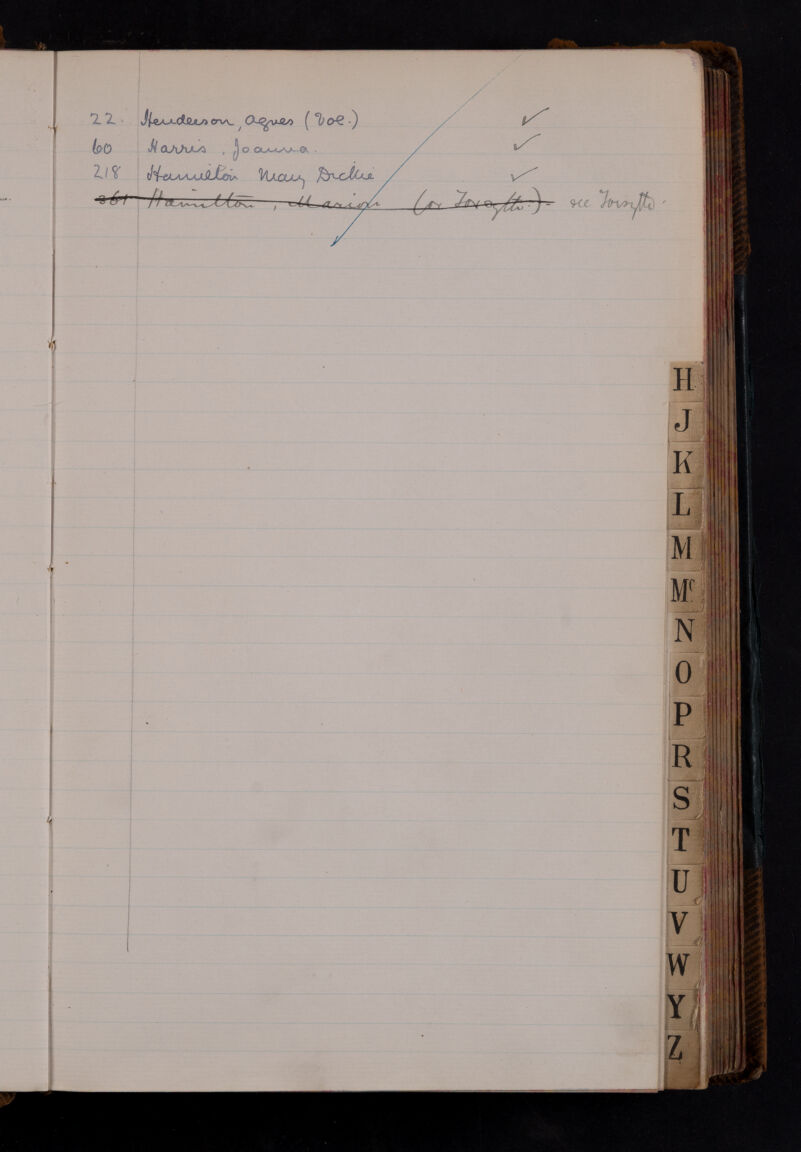 22. Henderson, Agnes (Voe.) ✓
60 Harris, Joanna. ✓
218 Hamilton Mary Dickie ✓
361 Hamilton, Marion (or Forsyth.). see Forsyth.
H
J
K
L
M
Mc
N
O
P
R
S
T
U
V
W
Y
Z